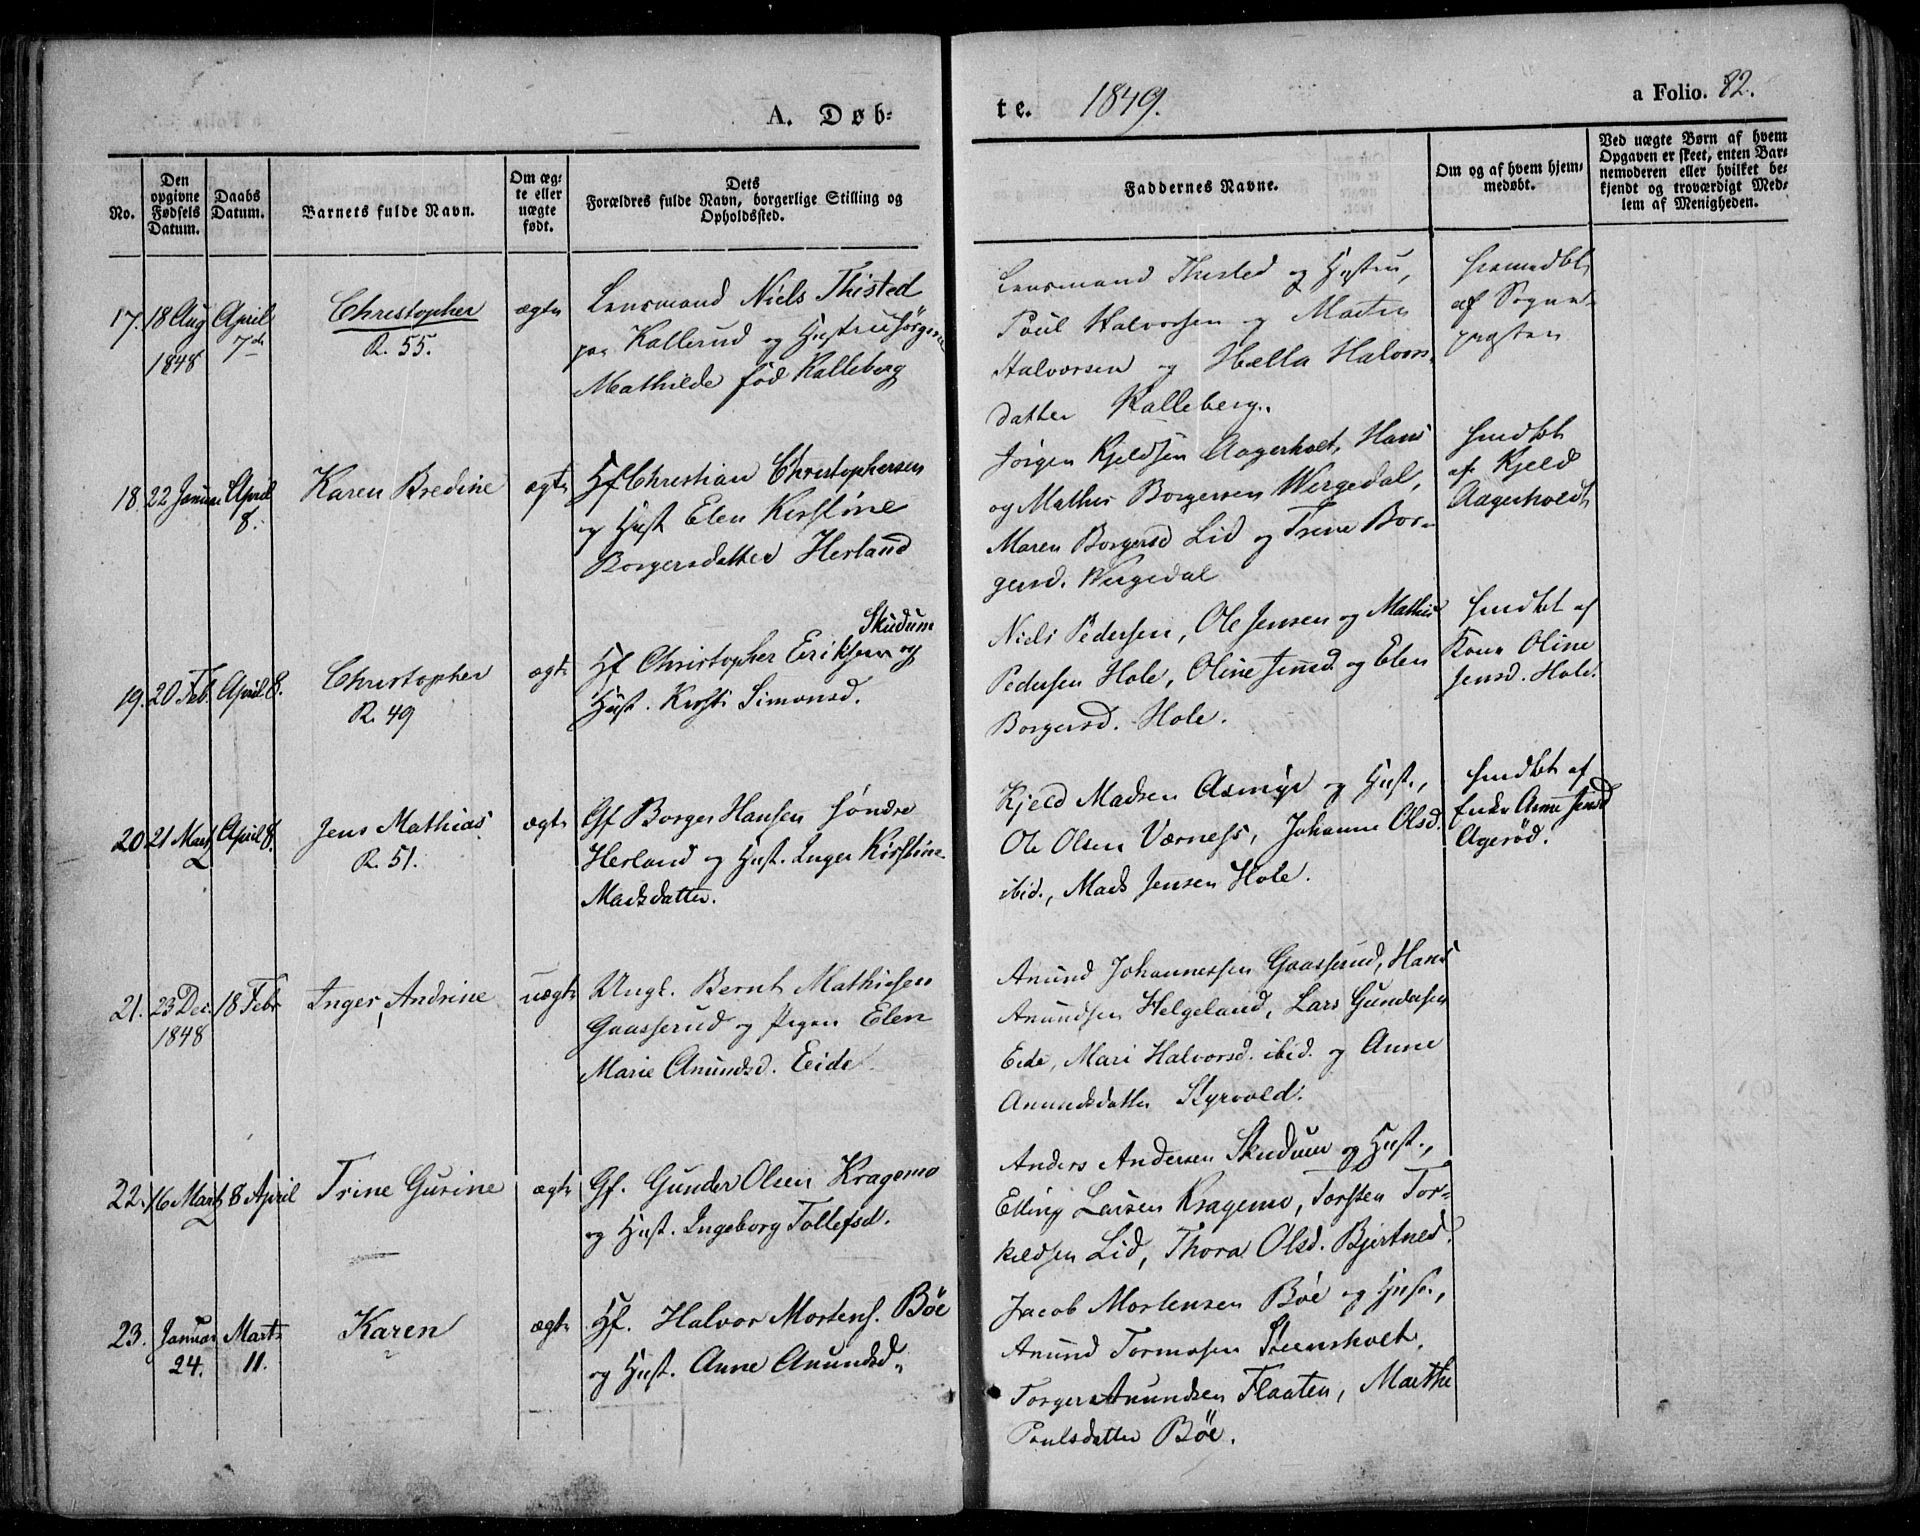 A. Døb-
te. 1849.
a Folio. 82.
No.
Den opgivne Fødsels Datum.
Daabs Datum.
Barnets fulde Navn.
Om ægte eller uægte født.
Dets Forældres fulde Navn, borgerlige Stilling og Opholdssted.
Faddernes Navne.
Om og af hvem hjemmedøbt.
Ved uægte Børn af hvem Opgaven er skeet, enten Barnemoderen eller hvilket bekjendt og troværdigt Medlem af Menigheden.
17. 18 Aug 1848
April 7de
Christopher
R. 55.
ægte
Lensmand Niels Thisted
paa Kallerud og Hustru Jørgine
Mathilde fød Kalleberg
Lensmand Thisted og Hustru,
Poul Halvorsen og Martin
Halvorsen og Hælla Halvors-
datter Kalleberg.
hjemmedbt
af Sogne-
præsten
18. 22 Januar
April 8.
Karen Bredine
ægte
Hf Christian Christophersen
og Hust Elen Kirstine
Borgersdatter Herland
Jørgen Kjeldsen Aagerholt, Hans
og Mathis Borgersen Wergedal,
Maren Borgersd Lid og Trine Bor-
gersd. Wergedal
hmdbt
af Kjeld
Aagerholdt
19. 20 Feb.
April 8.
Christopher
R. 49
ægte
Skudum
Hf Christopher Eriksen og
Hust. Kirsti Simonsd.
Niels Pedersen, Ole Jensen og Mathis
Pedersen Hole, Oline Jensd. og Elen
Borgersd. Hole.
hmdbt af
Kone Oline
Jensd. Hole.
20. 21 Marts
April 8.
Jens Mathias
R. 51.
ægte
Gf Borger Hansen søndre
Herland og Hust. Inger Kirstine
Madsdatter.
Kjeld Madsen Asmyr og Hust.,
Ole Olsen Værness, Johanne Olsd.
ibid., Mads Jensen Hole.
hmdbt af
Enke Anne Jensd
Agerød.
21. 23 Dec. 1848
18 Febr
Inger Andrine
uægte
Ungk. Bernt Mathiesen
Gaasserud og Pigen Elen
Marie Anundsd. Eide.
Anund Johannessen Gaasserud, Hans
Anundsen Helgeland, Lars Gundersen
Eide, Mari Halvorsd. ibid. og Anne
Anundsdatter Styrvold.
22. 16 Marts
8 April
Trine Gurine
ægte
Gf. Gunder Olsen Kragemo
og Hust. Ingeborg Tollefsd.
Anders Andersen Skudum og Hust.,
Elling Larsen Kragemo, Torsten Tor-
kildsen Lid, Thora Olsd. Bjertned.
23. Januar 24.
Marts 11.
Karen
ægte
Hf. Halvor Mortens. Böe
og Hust. Anne Anundsd.
Jacob Mortensen Böe og Hust.,
Anund Tormosen Steensholt,
Torger Anundsen Flaaten, Marthe
Poulsdatter Böe.